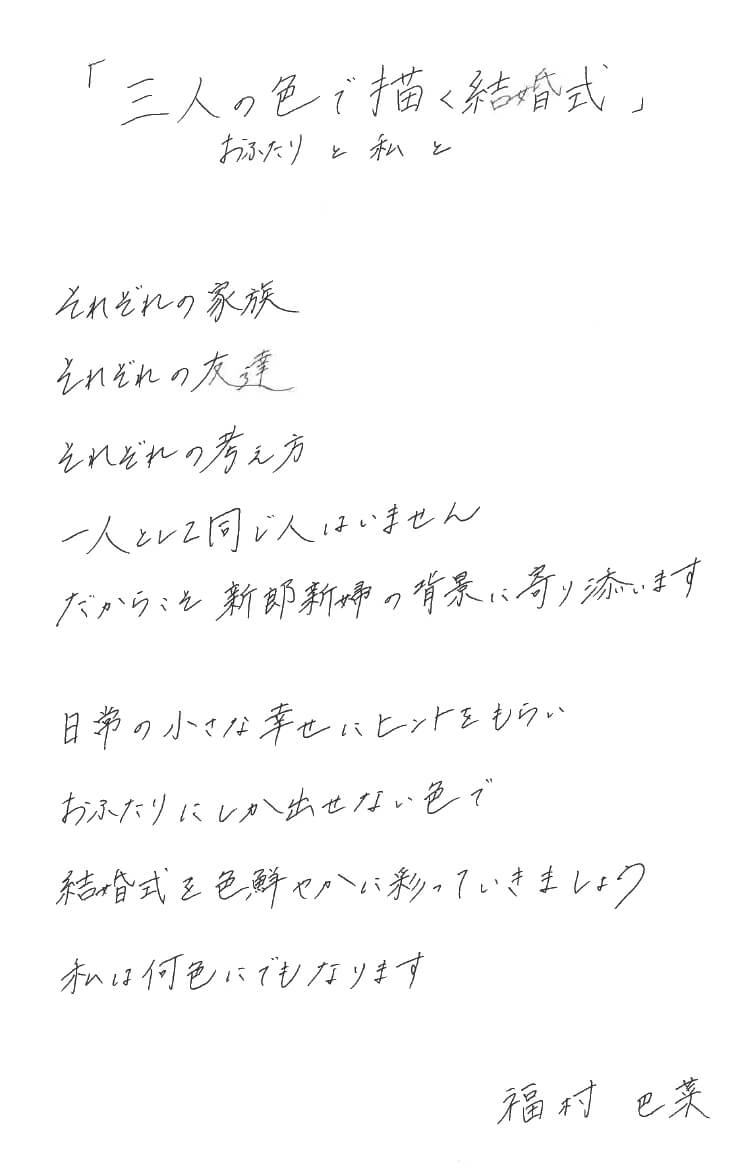 「三人の色で描く結婚式」
おふたりと私と
それぞれの家族
それぞれの友達
それぞれの考え方
一人として同じ人はいません
だからこそ新郎新婦の背景に寄り添います
日常の小さな幸せにヒントをもらい
おふたりにしか出せない色で
結婚式を色鮮やかに彩っていきましょう
私は何色にでもなります
福村 巴菜